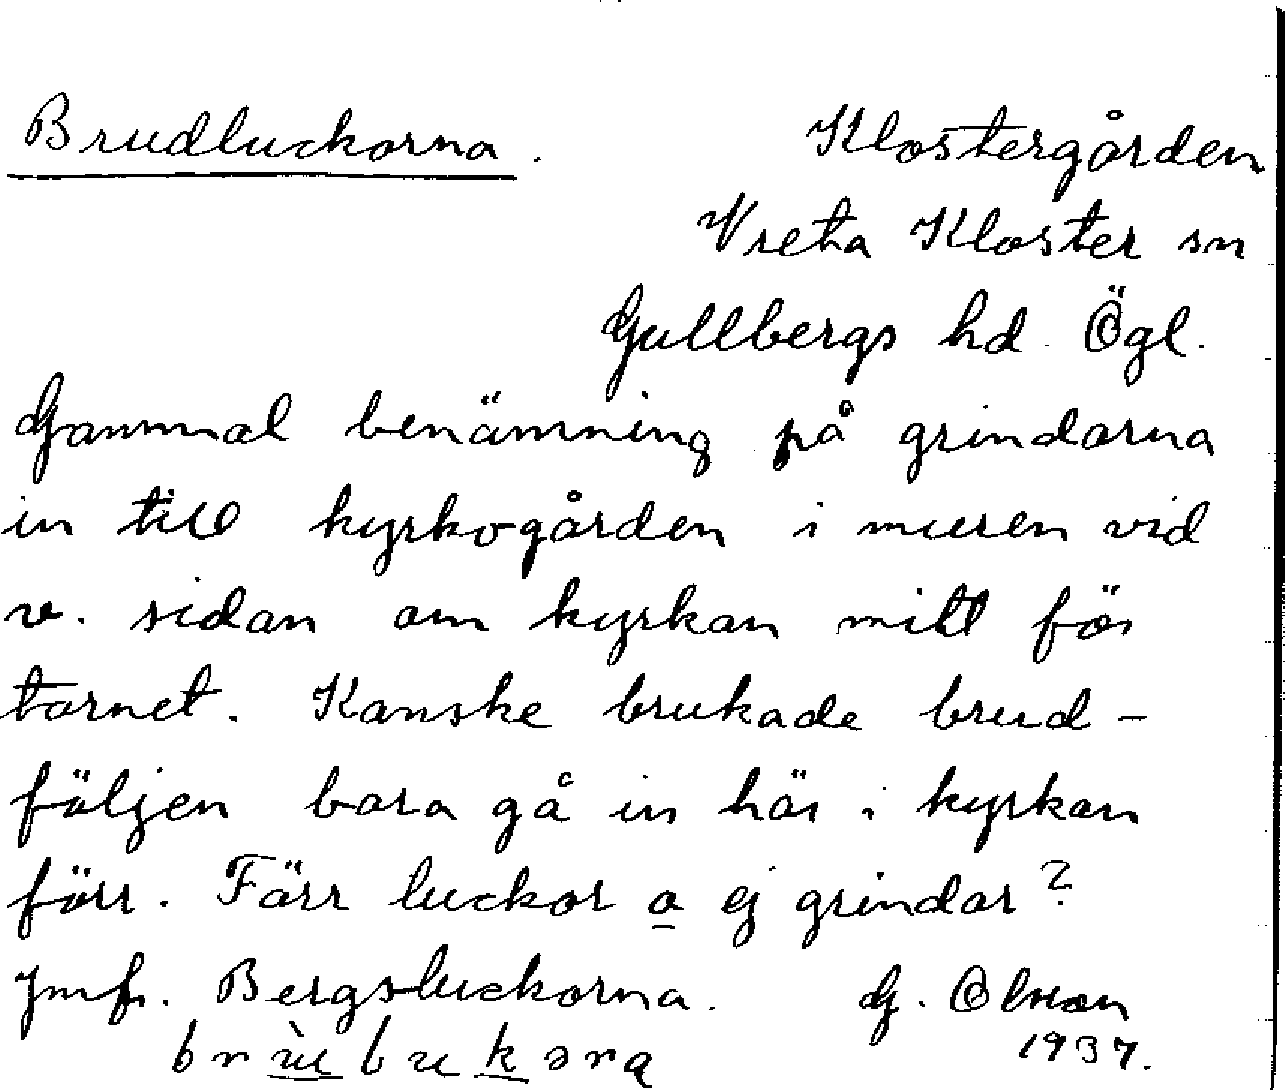 Brudluckorna. Klostergården
Vreta Kloster sn
Gullbergs hd. Ögl.
Gammal benämning på grindarna
in till kyrkogården i muren vid
v. sidan om kyrkan mitt för
tornet. Kanske brukade brud-
följen bara gå in här i kyrkan
förr. Förr luckor o ej grindar?
Jmf. Bergsluckorna. G. Olson
1937.